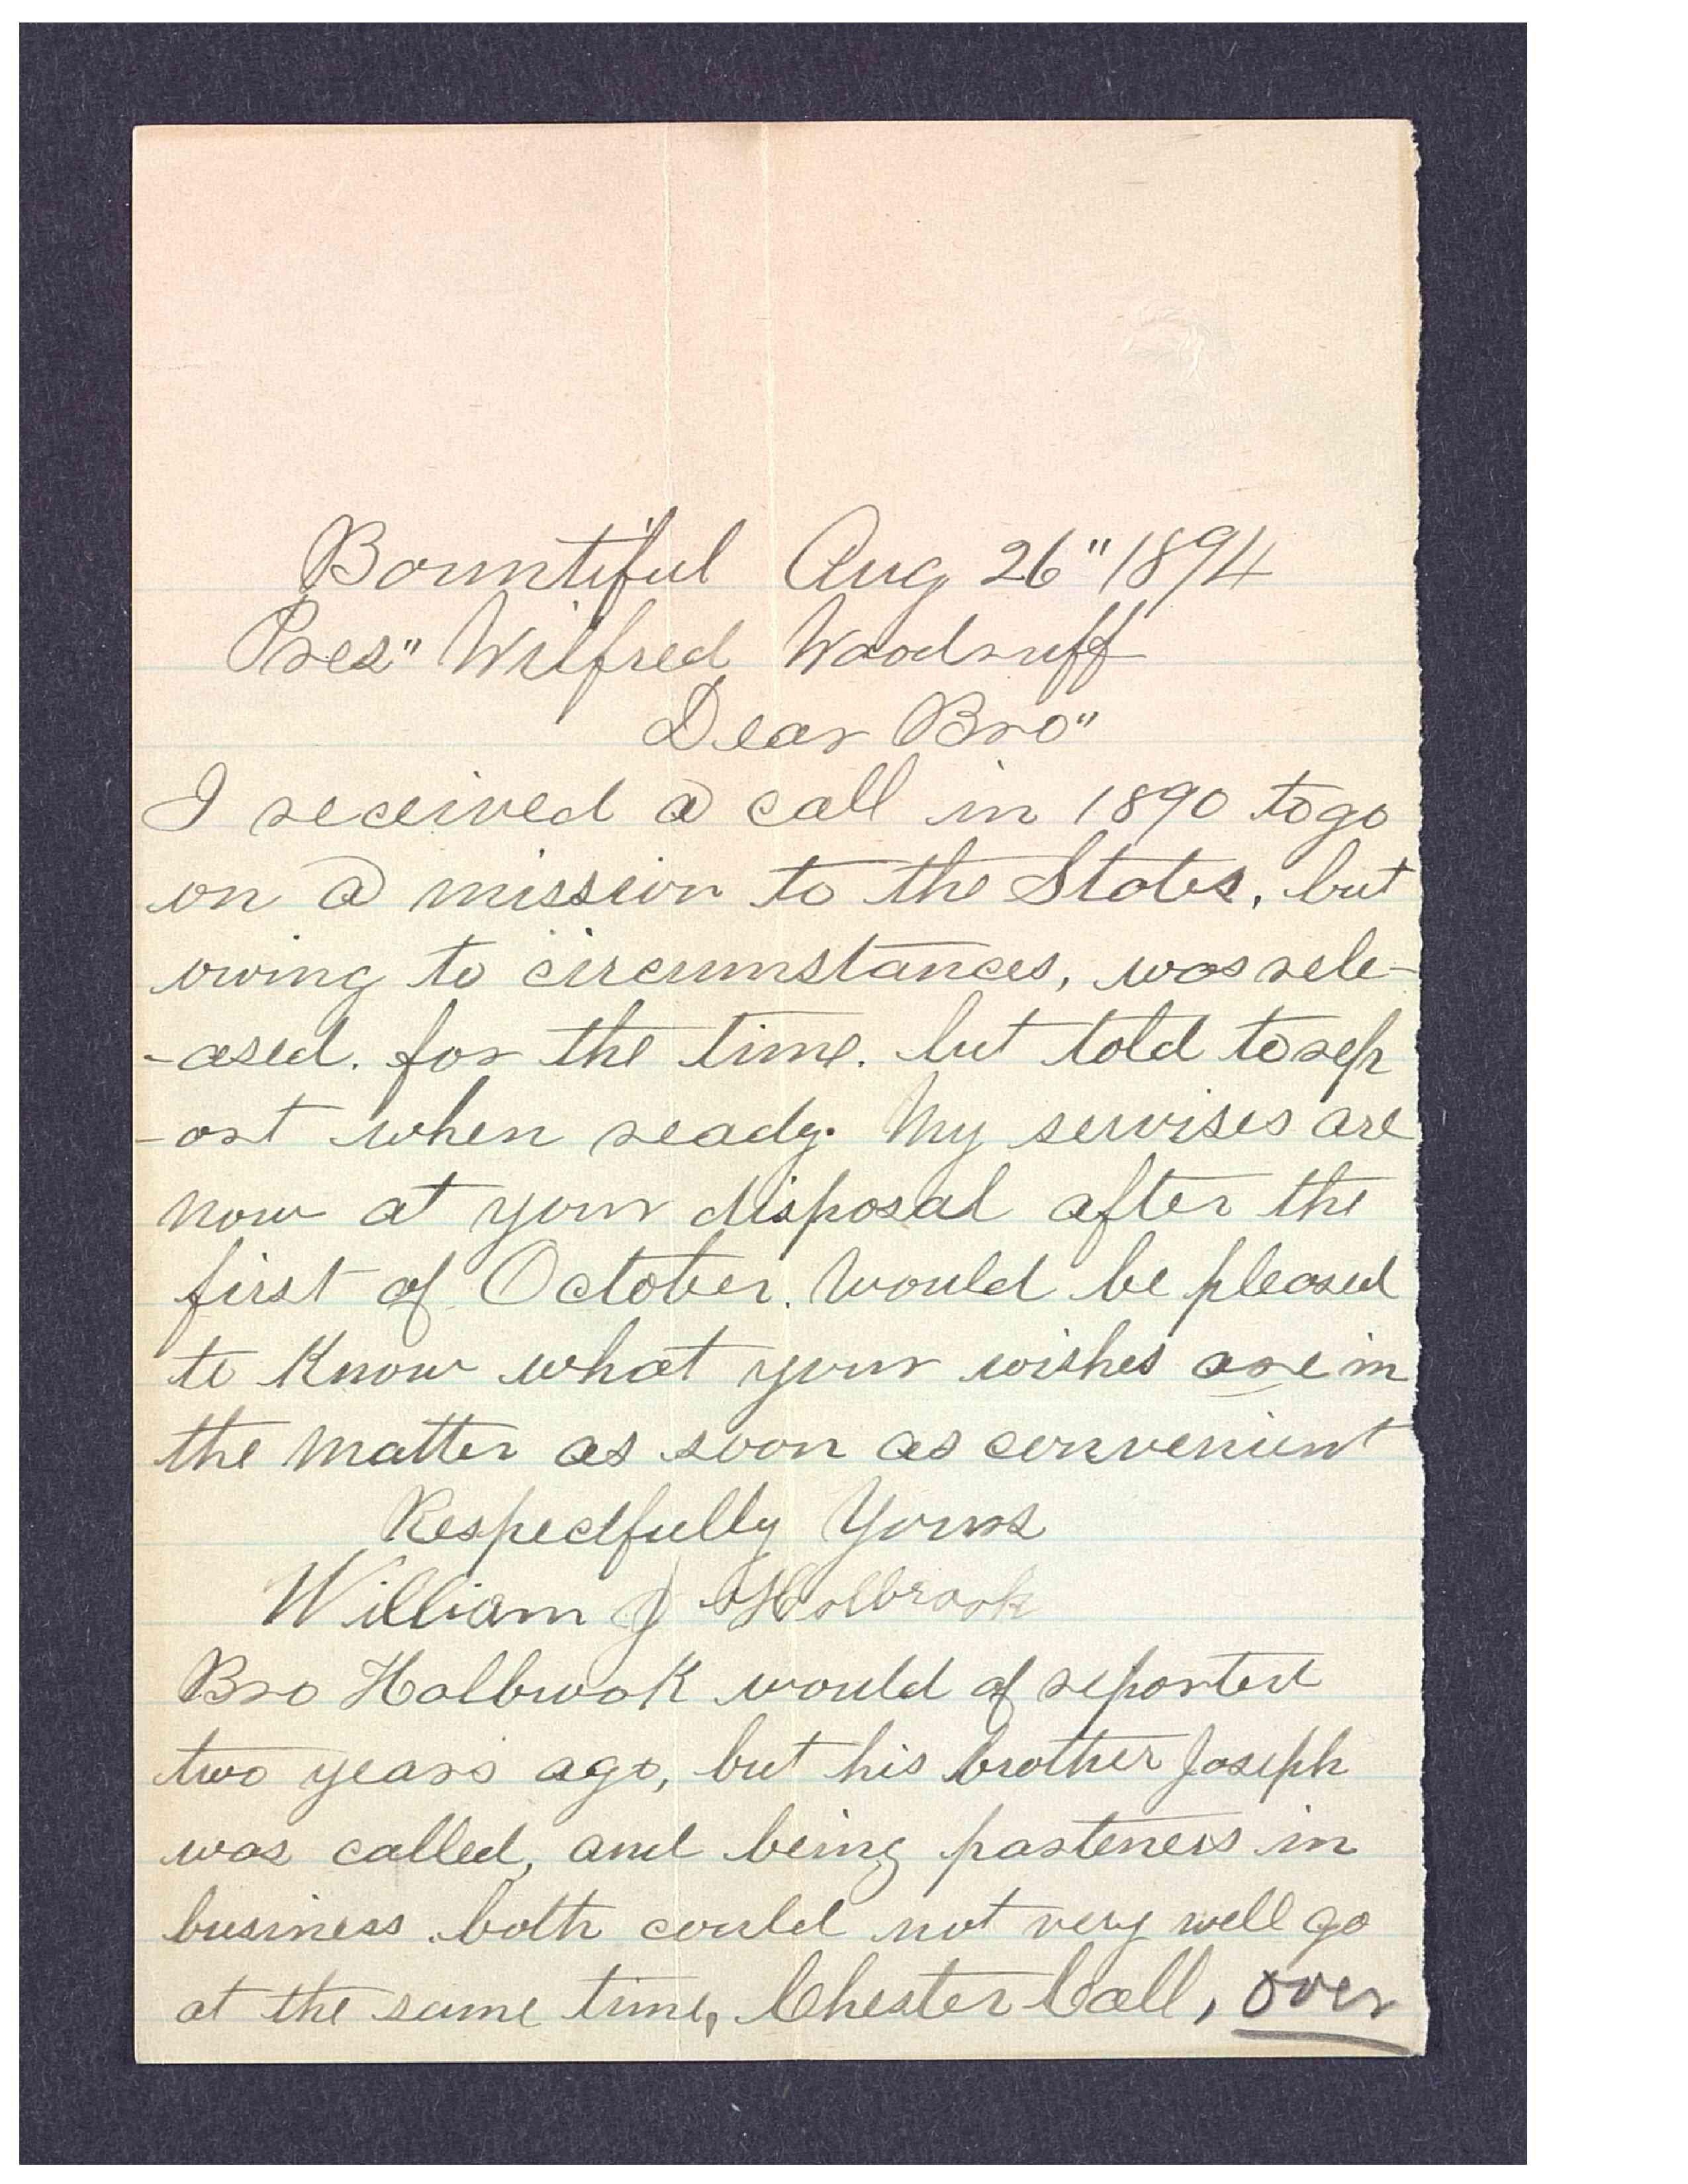 Bountiful Aug 26" 1894
Pres" Wilfred Woodruff
Dear Bro"
I received a call in 1890 to go
on a mission to the States, but
owing to circumstances, was rele-
-ased. for the time. but told to rep
-ort when ready. My servises are
now at your disposal after the
first of October. Would be pleased
to Know what your wishes are in
the matter as soon as convenient
Respectfully Yours
William J Holbrook
Bro Holbrook would of reported
two years ago, but his brother Joseph
was called, and being parteners in
business both could not very well go
at the same time, Chester Call, over